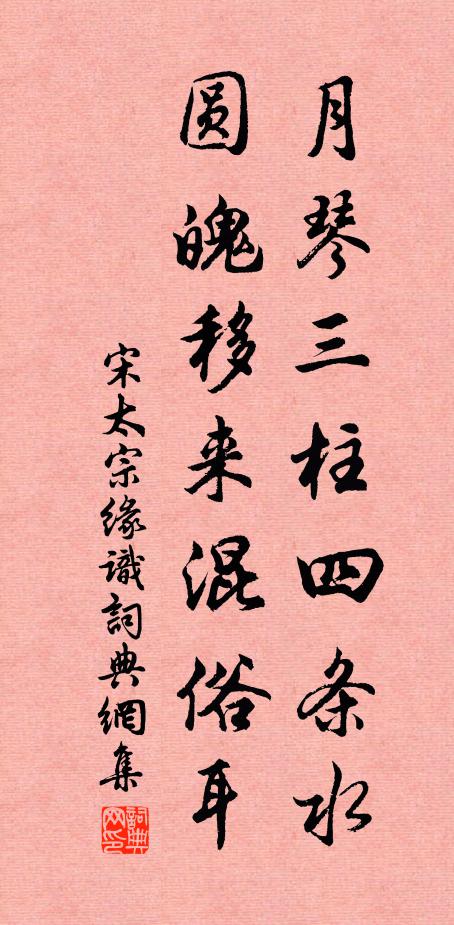 月琴三柱四条水
圆魄移来混俗耳
宋太宗缘識詞典網集
詞典网印